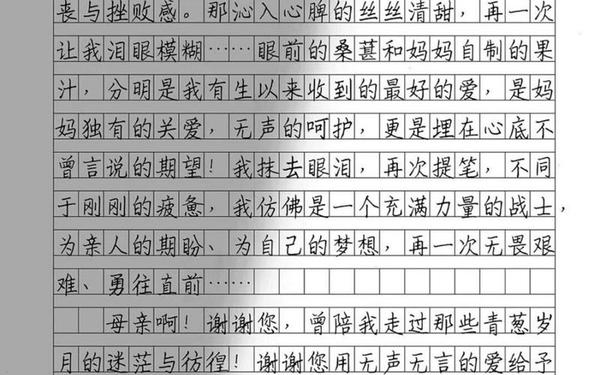 丧与挫败感。那沁入心脾的丝丝清甜，再一次
让我泪眼模糊……眼前的桑葚和妈妈自制的果
汁，分明是我有生以来收到的最好的爱，是妈
妈独有的关爱，无声的呵护，更是埋在心底不
曾言说的期望！我抹去眼泪，再次提笔，不同
于刚刚的疲惫，我仿佛是一个充满力量的战士，
为亲人的期盼、为自己的梦想，再一次无畏艰
难、勇往直前……
母亲啊！谢谢您，曾陪我走过那些青葱岁
月的迷茫与彷徨！谢谢您用无声无言的爱给予